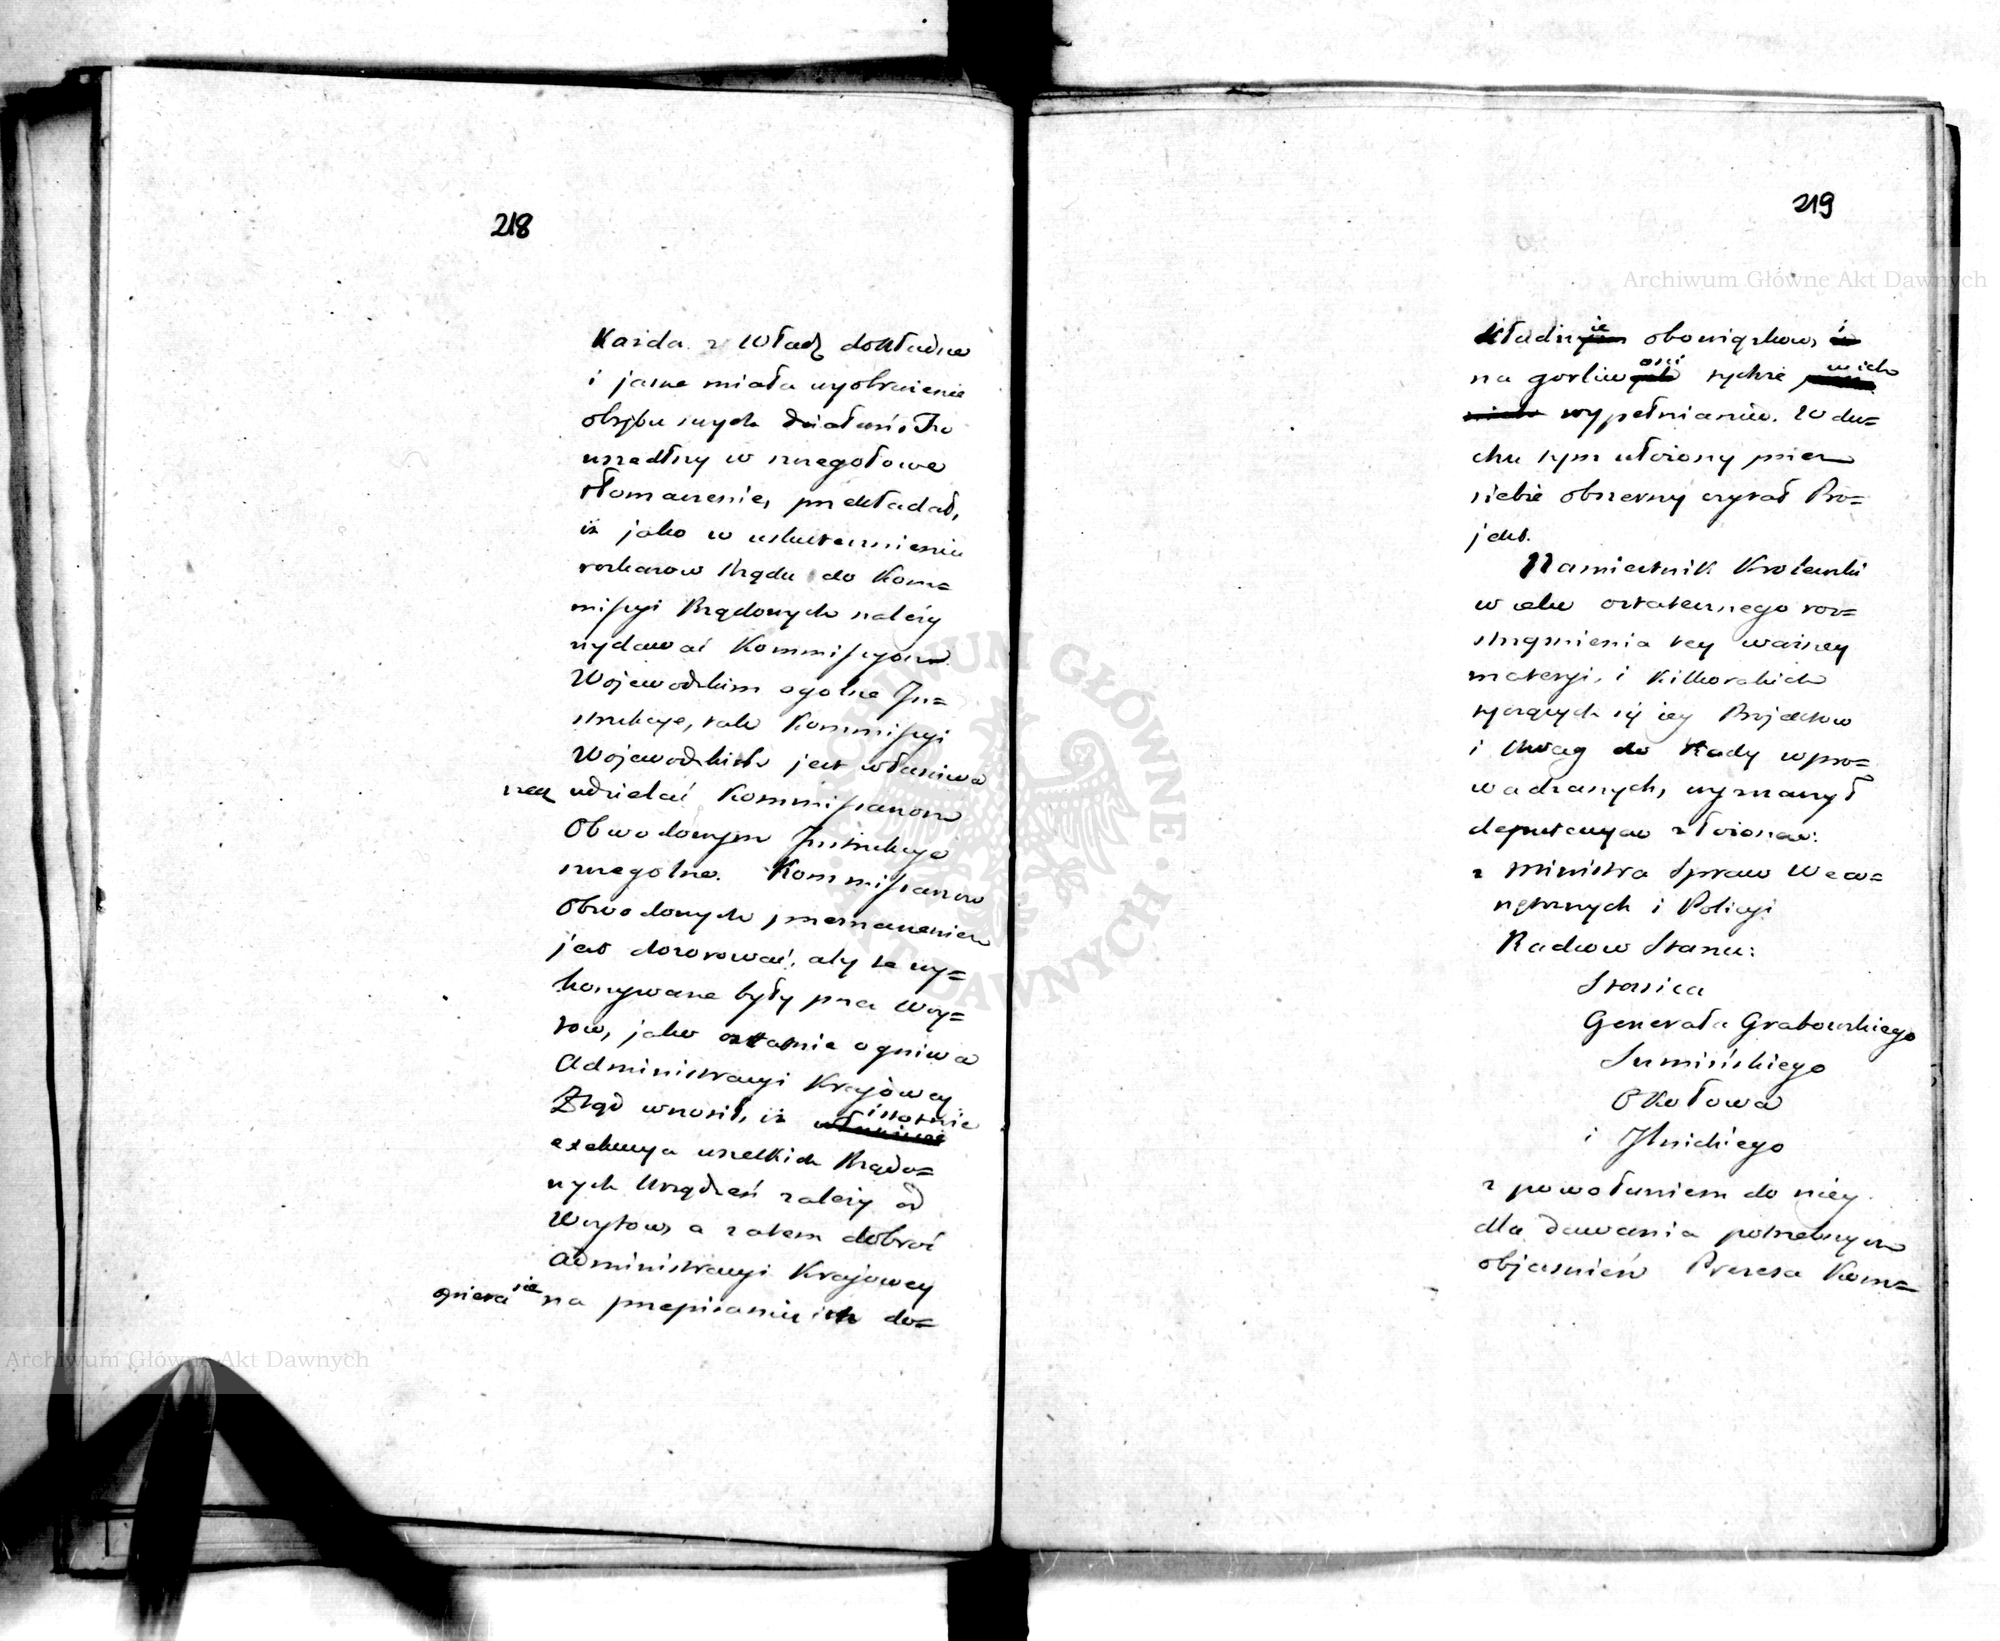 218
Każda z Władz dokładne
i jasne miała wyobrażenie
obrębu swych działań. Tu
wszedłszy w szczegółowe
tłomaczenie, przekładał,
iż jako w uskutecznieniu
rozkazow Rządu do Kom=
missyi Rządowych należy
wydawać Kommissyom
Wojewodzkim ogolne In=
strukcye, tak Kommissyi
Wojewodzkich jest właściwą
rzeczą udzielać Kommissarzom
Obwodowym Instrukcye
szczegolne. Kommissarzow
Obwodowych przeznaczeniem
jest dozorować, aby te wy=
konywane były przez Woy=
tow, jako ostatnie ogniwa
Administracyi Krajowey
Ztąd wnosił, iż istotnie
exekucya wszelkich Rządo=
wych Urządzeń zależy od
Woytow, a zatem dobroć
Administracyi Krajowey
opiera się na przepisaniu ich do=
219
Archiwum Główne Akt Dawnych
kładnie obowiązkow, i
na gorliwości tychże w ich
wypełnianiu. W du=
chu tym ułożony przez
siebie obszerny czytał Pro=
jekt.
Namiestnik Krolewski
w celu ostatecznego roz=
strząśnienia tey ważney
materyi, i kilkorakich
tyczących się iey Projektow
i Uwag do Rady wpro=
wadzanych, wyznaczył
deputacyą złożoną:
z Ministra Spraw Wew=
nętrznych i Policyi
Radcow Stanu:
Stasica
Generała Grabowskiego
Sumińskiego
Okołowa
i Ilnickiego
z powołaniem do niey
dla dawania potrzebnych
objasnień Prezesa Kom=
ARCHIWUM GŁÓWNE AKT DAWNYCH
Archiwum Główne Akt Dawnych